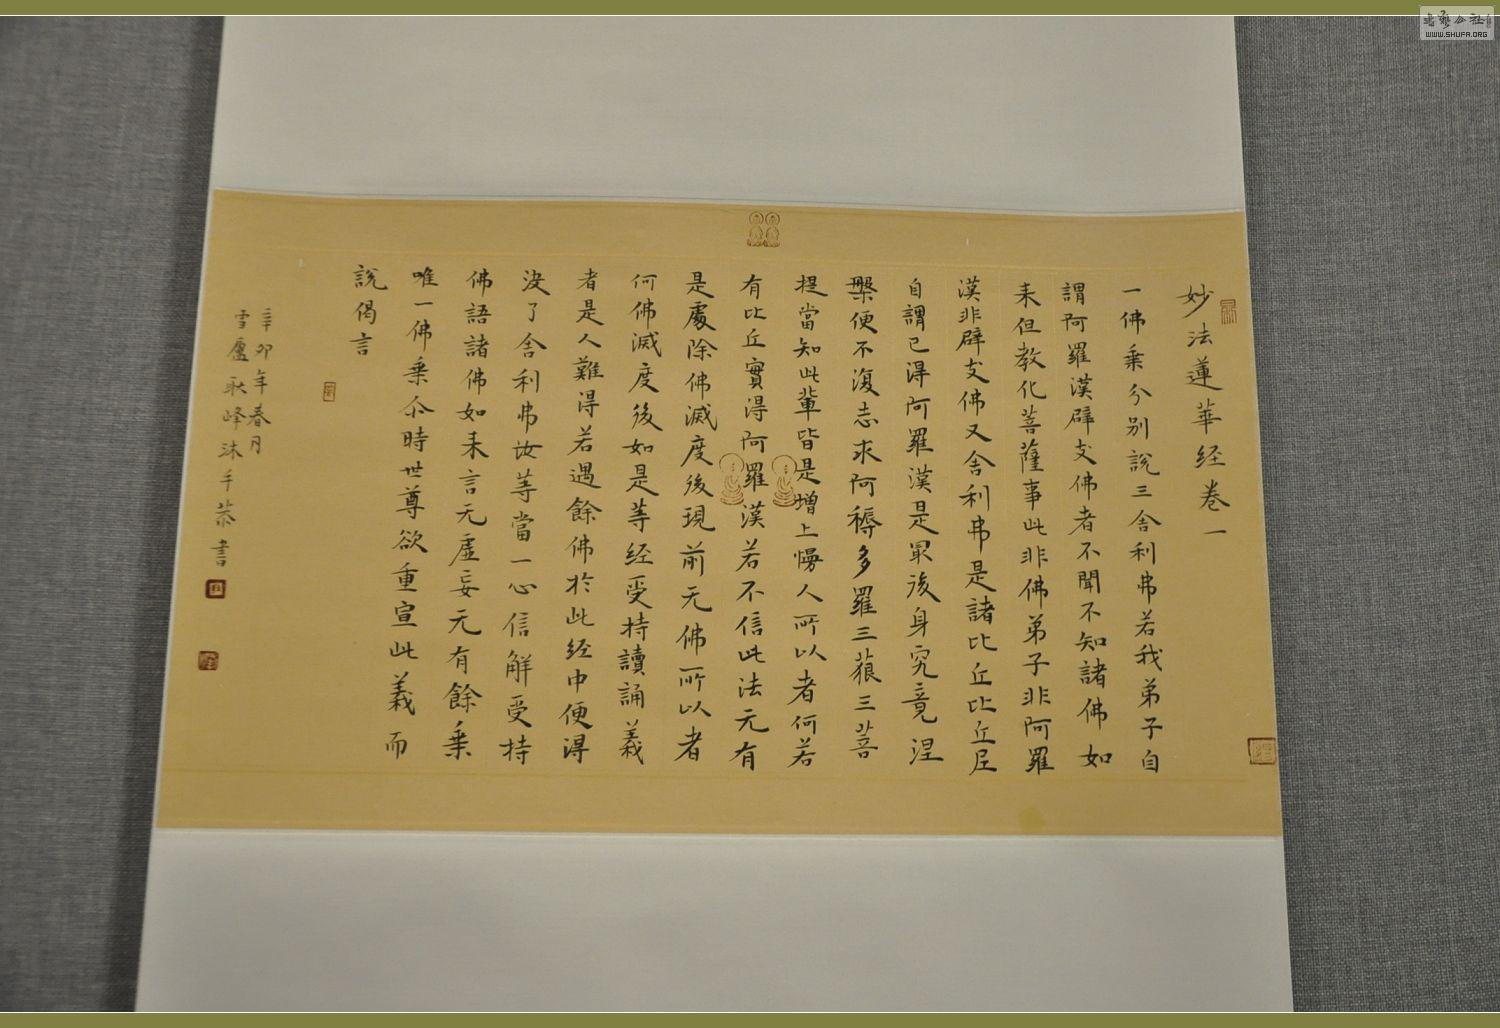 妙法蓮華経卷一
一佛乗分別說三舎利弗若我弟子自
謂阿羅漢辟支佛者不聞不知諸佛如
来但教化菩薩事此非佛弟子非阿羅
漢非辟支佛又舎利弗是諸比丘比丘尼
自謂已得阿羅漢是最後身究竟涅
槃便不復志求阿耨多羅三藐三菩
提當知此輩皆是增上慢人所以者何若
有比丘實得阿羅漢若不信此法无有
是處除佛滅度後現前无佛所以者
何佛滅度後如是等経受持讀誦義
者是人難得若遇餘佛於此経中便得
決了舎利弗汝等當一心信解受持
佛語諸佛如来言无虛妄无有餘乗
唯一佛乗尒時世尊欲重宣此義而
說偈言
辛卯年春月
雪廬耿峰沐手恭書
WWW.SHUFA.ORG